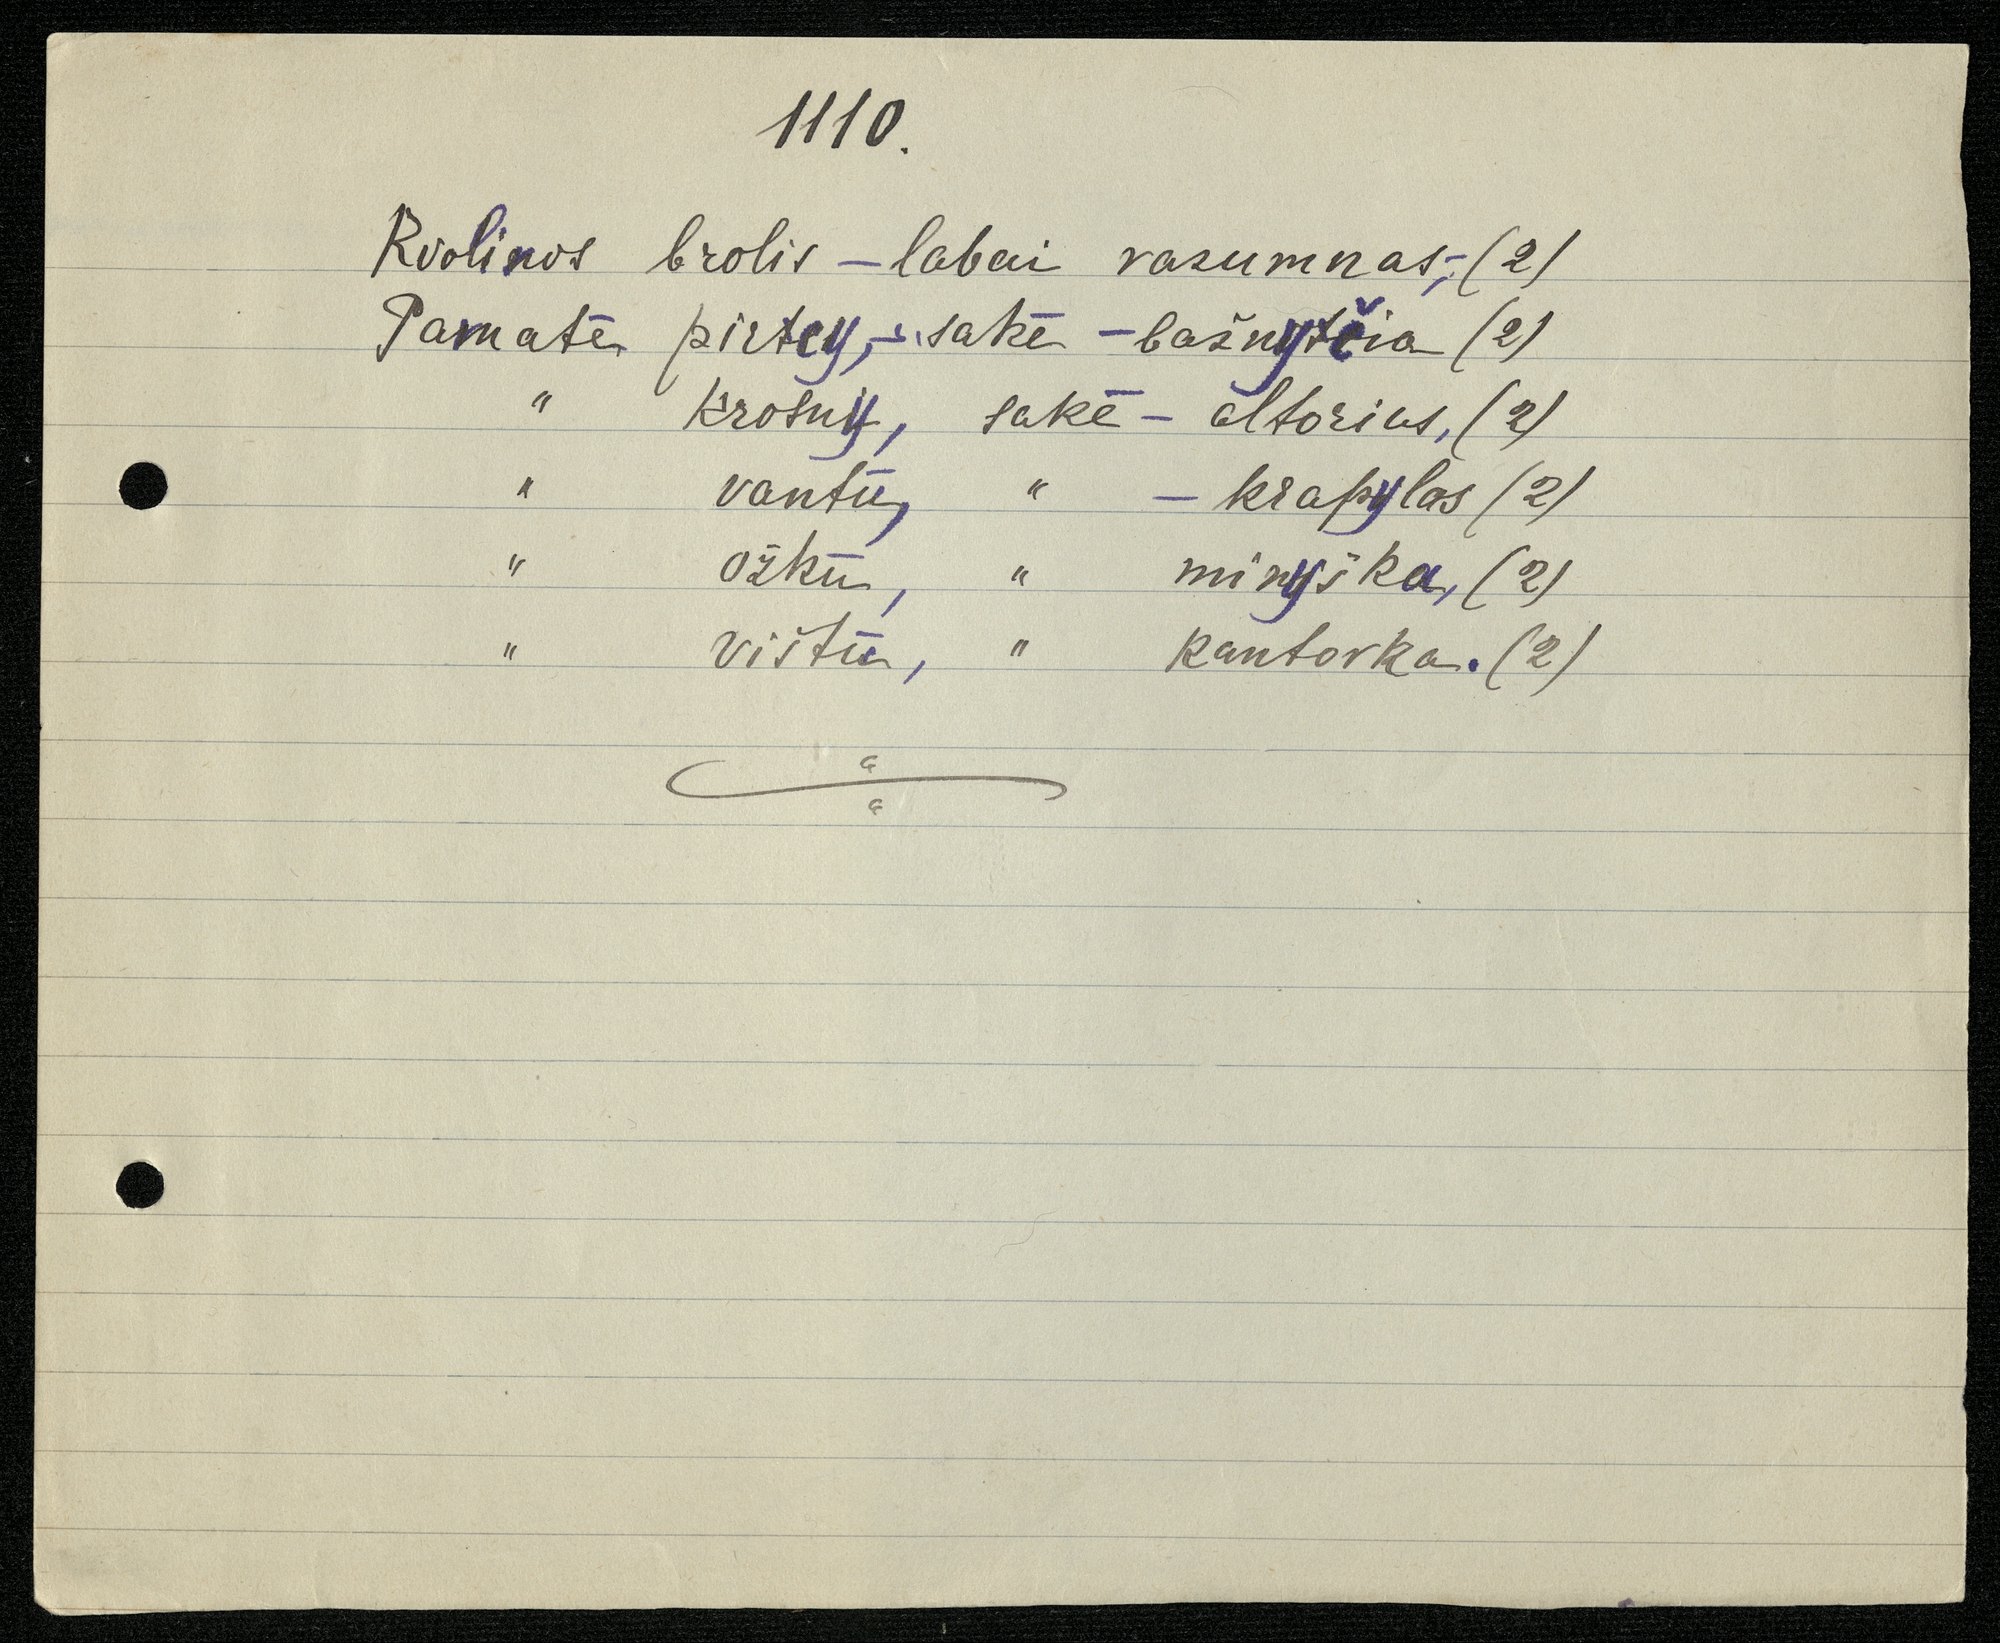 1110.
Rvolinos brolis – labai razumnas; – (2)
Pamatē pirtey, – sakē – bažnyčia (2)
" krosniy, sakē – altorius, (2)
" vantū, " – krapylas (2)
" ožkū, " minyška, (2)
" vištū, " kantorka. (2)